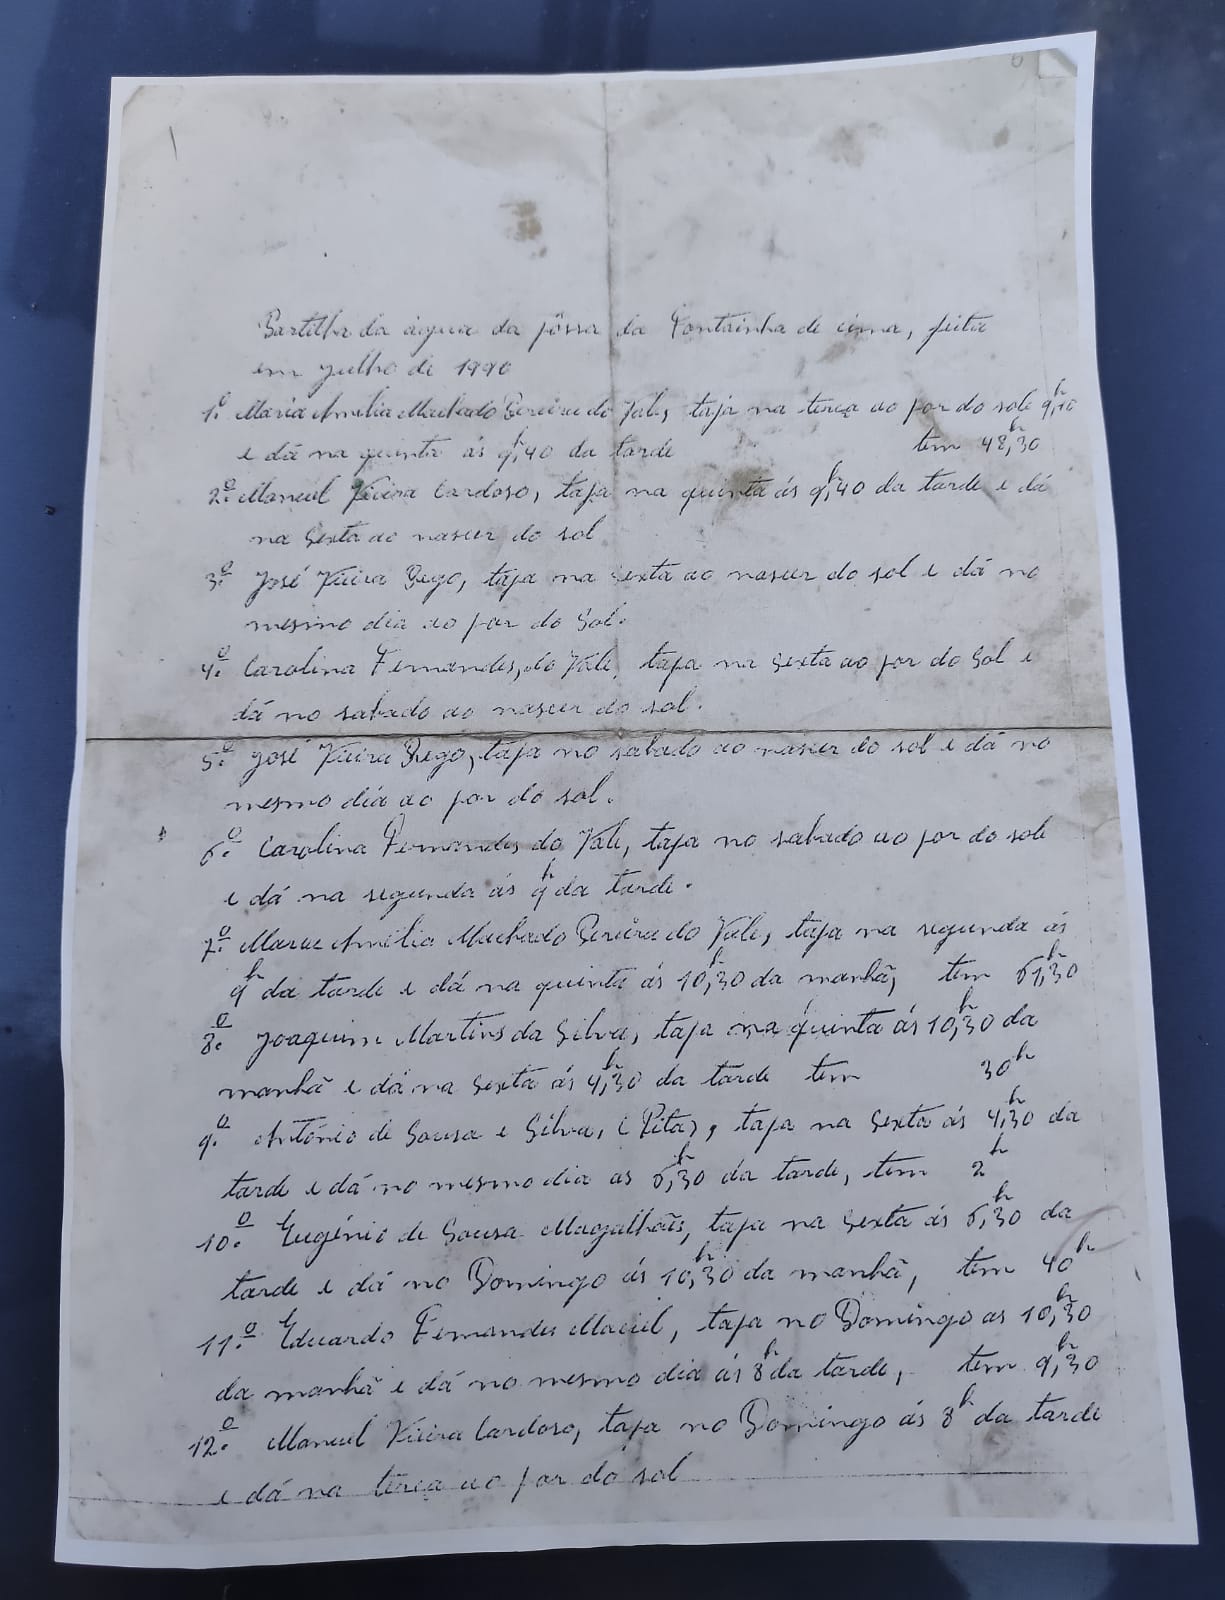 Partilha da água da pôssa da Fontainha de cima, feita
em julho de 1990
1.º Maria Amélia Machado Pereira do Vale, tapa na terça ao por do sole 9,10h
e dá na quinta ás 9,h40 da tarde tem 48,h30
2.º Manuel Vieira Cardoso, tapa na quinta ás 9,h40 da tarde e dá
na Sexta ao nascer do sol
3.º José Vieira Rego, tapa na Sexta ao nascer do sol e dá no
mesmo dia ao por do Sol.
4.º Carolina Fernandes, do Vale, tapa na Sexta ao por do Sol e
dá no sabado ao nascer do sol.
5.º José Vieira Rego, tapa no sabado ao nascer do sol e dá no
mesmo dia ao por do sol.
6.º Carolina Fernandes do Vale, tapa no sabado ao por do sole
e dá na segunda ás 9h da tarde.
7.º Maria Amélia Machado Pereira do Vale, tapa na segunda ás
9h da tarde e dá na quinta ás 10,h30 da manhã, tem 61,h30
8.º Joaquim Martins da Silva, tapa na quinta ás 10,h30 da
manhã e dá na Sexta ás 4,h30 da tarde tem 30h
9.º António de Sousa e Silva, (Pita), tapa na Sexta ás 4,h30 da
tarde e dá no mesmo dia as 6,h30 da tarde, tem 2h
10.º Eugénio de Sousa Magalhães, tapa na Sexta ás 6,h30 da
tarde e dá no Domingo ás 10,h30 da manhã, tem 40h
11.º Eduardo Fernandes Maciel, tapa no Domingo as 10,h30
da manhã e dá no mesmo dia ás 8h da tarde, tem 9,h30
12.º Manuel Vieira Cardoso, tapa no Domingo ás 8h da tarde
e dá na terça ao por do sol